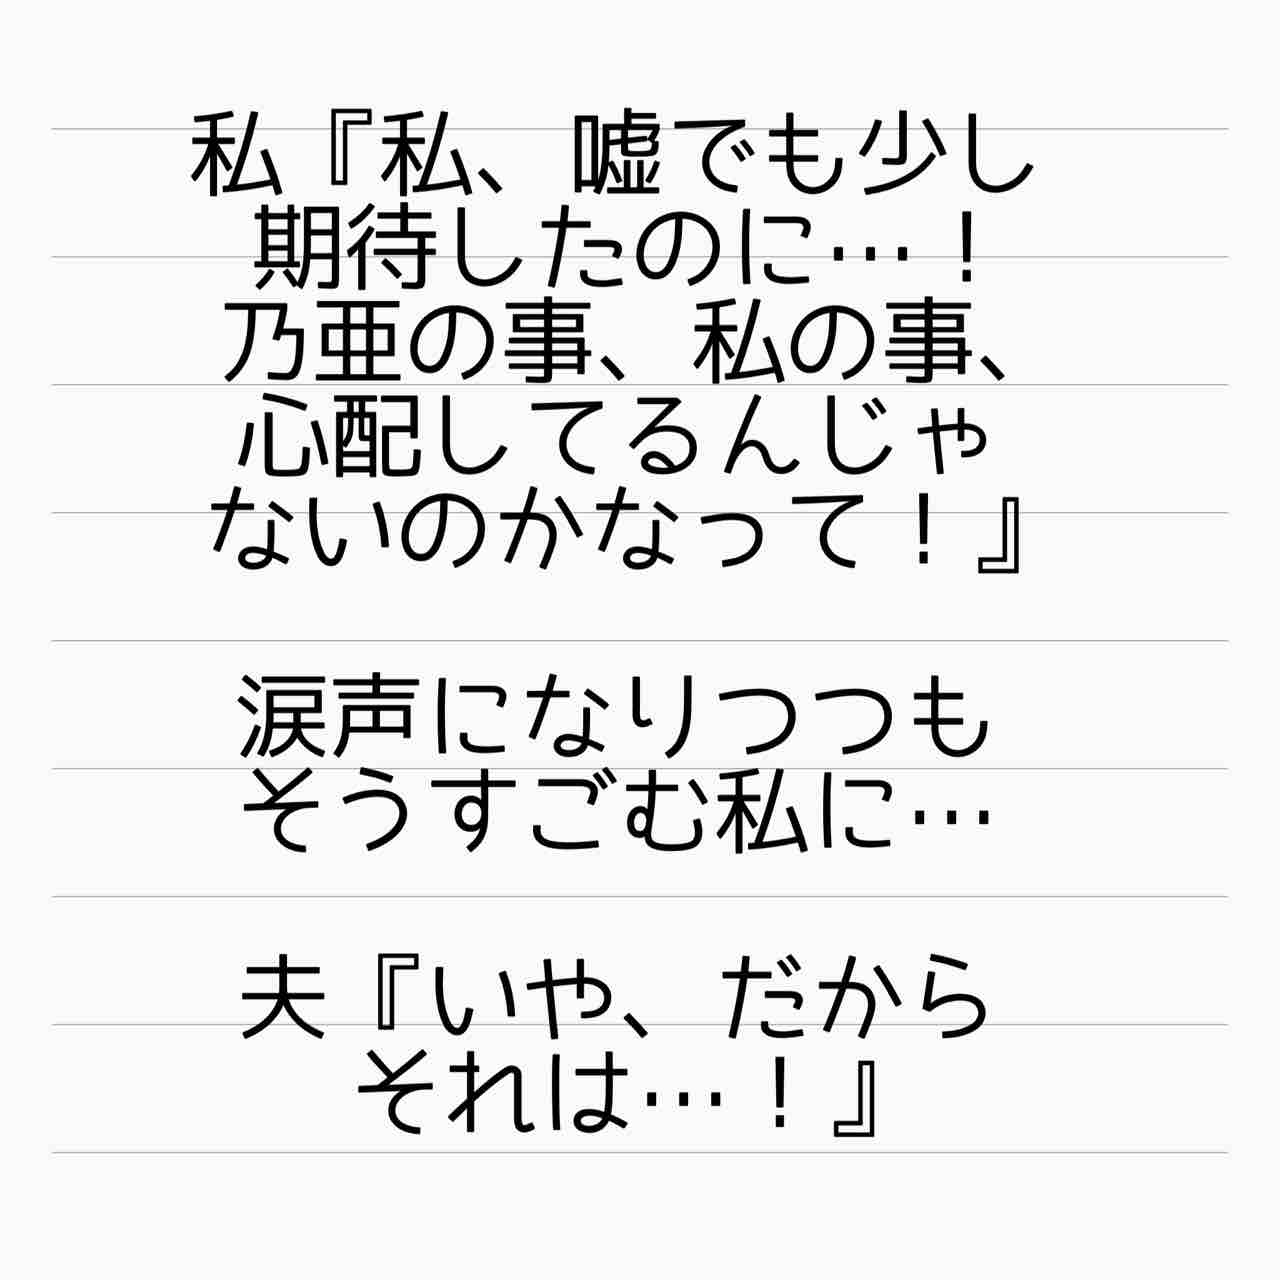 私『私、嘘でも少し
期待したのに…！
乃亜の事、私の事、
心配してるんじゃ
ないのかなって！』
涙声になりつつも
そうすごむ私に…
夫『いや、だから
それは…！』